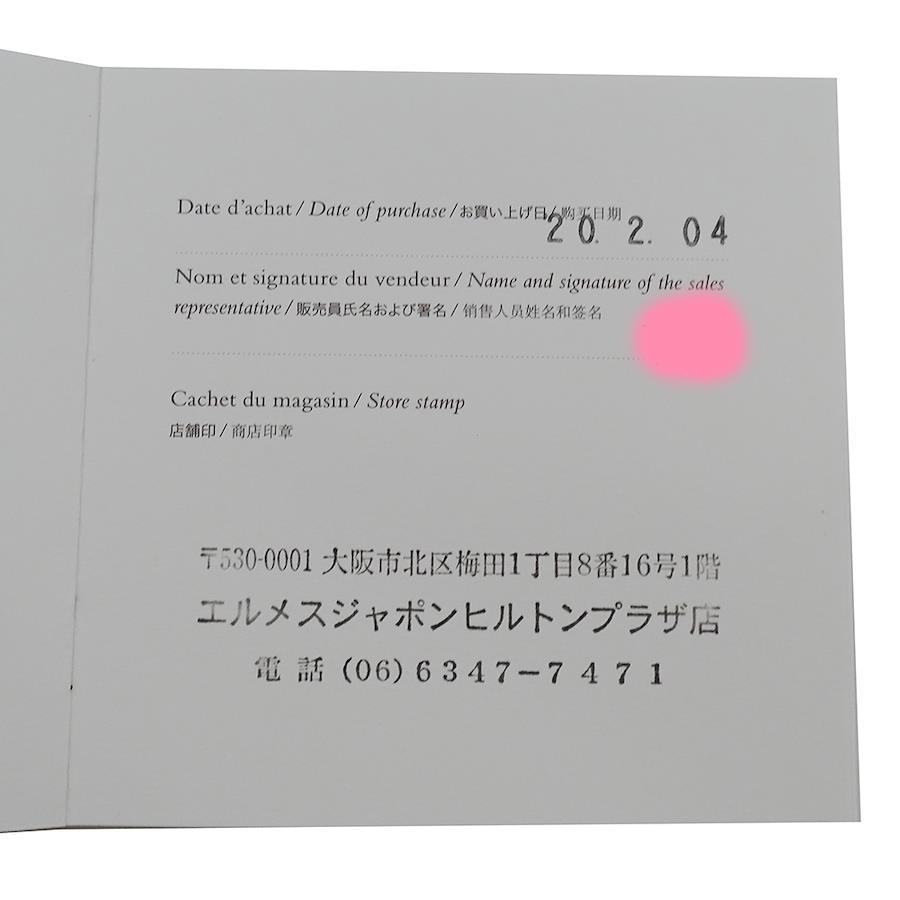 Date d'achat / Date of purchase / お買い上げ日 / 购买日期
20. 2. 04
Nom et signature du vendeur / Name and signature of the sales
representative / 販売員氏名および署名 / 销售人员姓名和签名
Cachet du magasin / Store stamp
店舗印 / 商店印章
〒530-0001 大阪市北区梅田1丁目8番16号1階
エルメスジャポンヒルトンプラザ店
電話 (06) 6347-7471